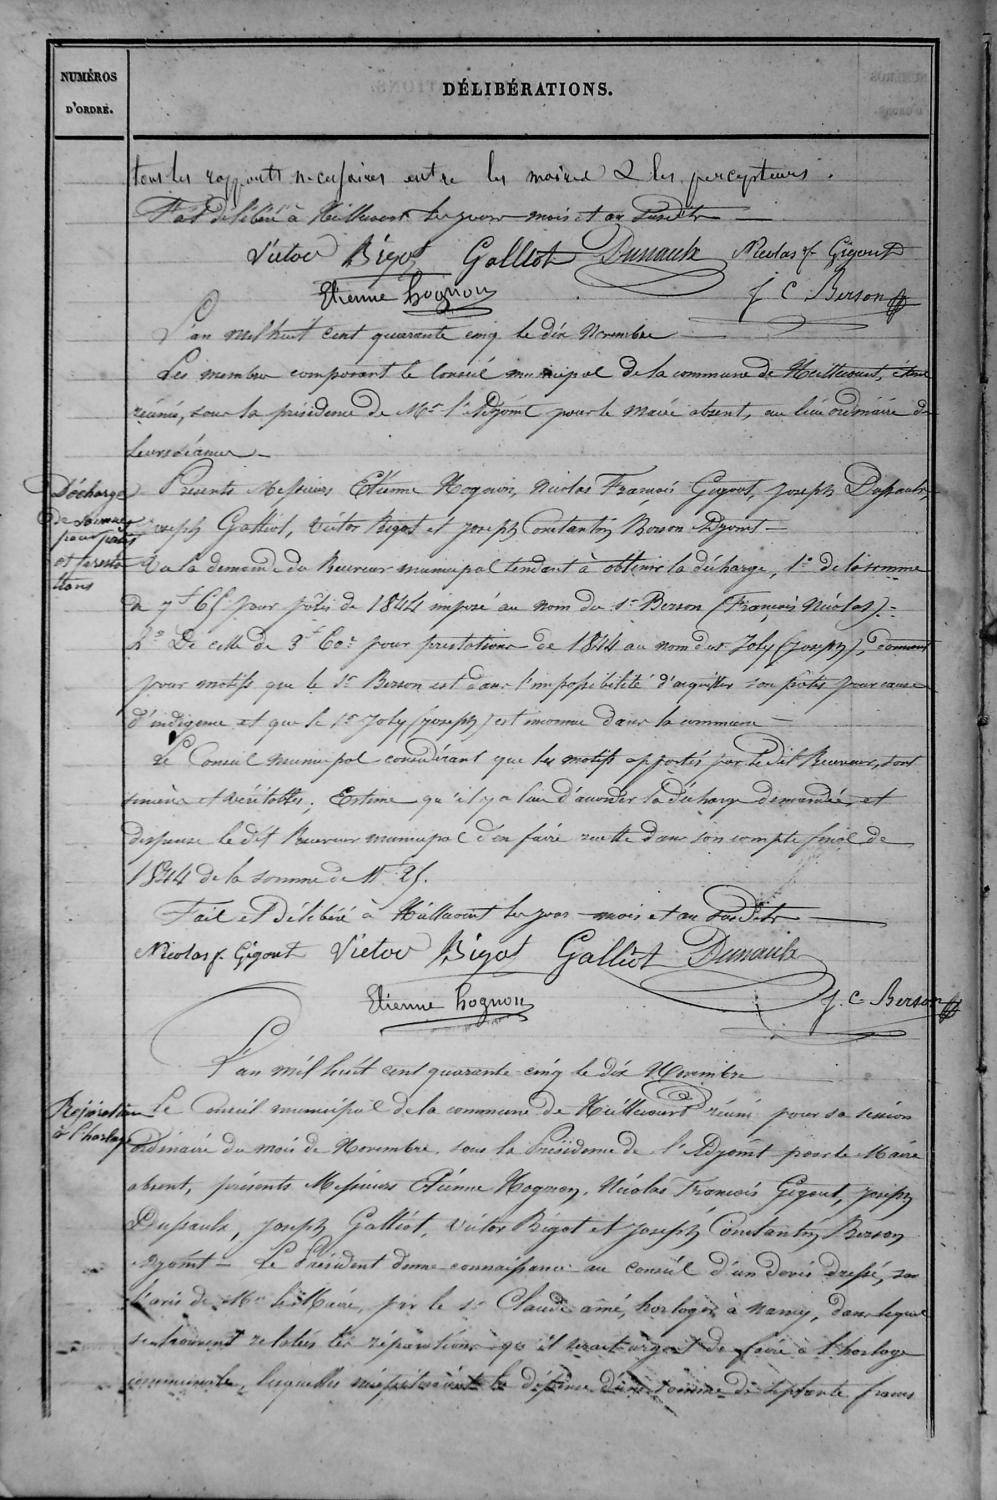 NUMÉROS
D'ORDRE.
DÉLIBÉRATIONS.
tous les rapports necessaires entre les maires & les percepteurs.
Fait et délibéré à Heillecourt les jour mois et an susdits
Victor Bigot Galliot Dussaulx Nicolas f. Gigout
Etienne hognon J. C. Berson
L'an mil huit cent quarante cinq le dix Novembre
Les membres composant le Conseil municipal de la commune de Heillecourt, étant
réunis, sous la présidence de Mr. l'Adjoint pour le maire absent, au lieu ordinaire de
leurs séances
Décharge
de sommes
pour patis
et presta
tions
Présents Messieurs Etienne Hognon, Nicolas François Gigout, Joseph Dussaulx,
Joseph Galliot, Victor Bigot et Joseph Constantin Berson Adjoint
Vu la demande du Receveur municipal tendant à obtenir la décharge, 1º de la somme
de 7f 65c pour pâtis de 1844 imposé au nom du sr Berson (François Nicolas).
2º De celle de 3f 60c pour prestations de 1844 au nom du sr Joly (Joseph), donnant
pour motifs que le Sr Berson est dans l'impossibilité d'acquitter son pâtis pour cause
d'indigence et que le sr Joly (Joseph) est inconnu dans la commune
Le Conseil municipal considérant que les motifs apportés par ledit Receveur, sont
sincères et véritables; Estime qu'il y a lieu d'accorder la décharge demandée, et
dispense le dit Receveur municipal d'en faire recette dans son compte final de
1844 de la somme de 11f 25.
Fait et Délibéré à Heillecourt les jour mois et an susdits
Nicolas f. Gigout Victor Bigot Galliot Dussaulx
Etienne hognon J. C. Berson
L'an mil huit cent quarante cinq le dix Novembre
Réparation
à l'horloge
Le Conseil municipal de la commune de Heillecourt réuni pour sa session
ordinaire du mois de Novembre, sous la Présidence de l'Adjoint pour le Maire
absent, présents Messieurs Etienne Hognon, Nicolas François Gigout, Joseph
Dussaulx, Joseph Galliot, Victor Bigot et Joseph Constantin Berson
Adjoint – Le Président donne connaissance au conseil d'un devis dressé, sur
l'avis de Mr. le Maire, par le sr Claude aimé, horloger à Nancy, dans lequel
se trouvent relatées les réparations qu'il serait urgent de faire à l'horloge
communale, lesquelles nécessiteraient la dépense d'une somme de septante francs